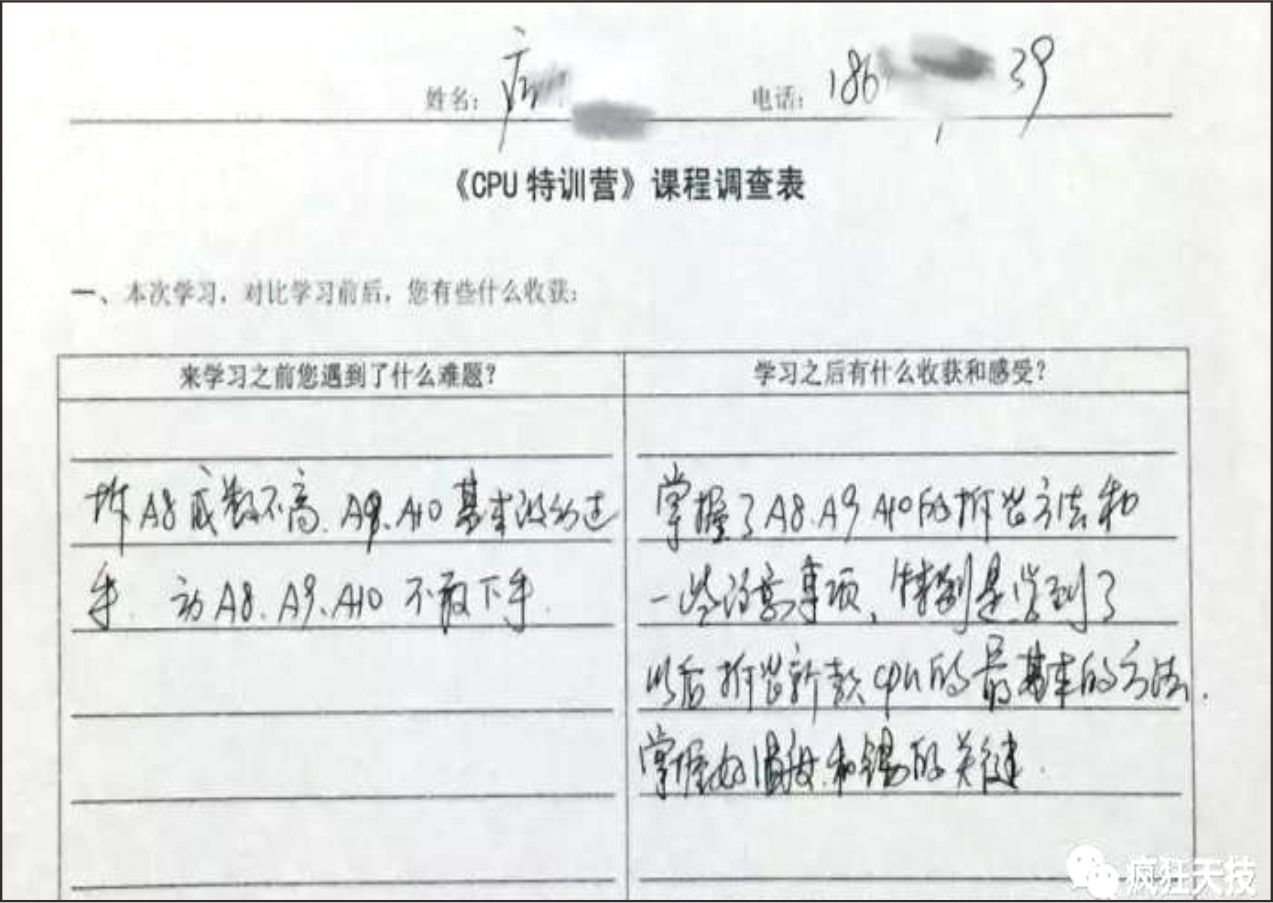 姓名: 电话: 186 39
《CPU 特训营》课程调查表
一、本次学习，对比学习前后，您有些什么收获:
来学习之前您遇到了什么难题?
拆A8成数不高、A9、A10基本没动过
手、动A8、A9、A10不敢下手.
学习之后有什么收获和感受?
掌握了A8、A9 A10的拆装方法和
一些注意事项，特别是学到了
以后拆装新款CPU的最基本的方法.
掌握好温度和锡的关键.
疯狂天技